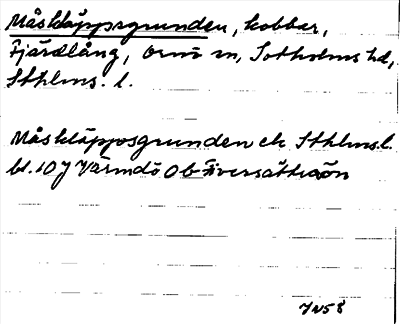 Måskläppsgrunden, kobbar,
Fjärdlång, Ornö sn, Sotholms hd,
Sthlms. l.
Måskläppsgrunden ek Sthlms l.
bl. 107 Värmdö Ob